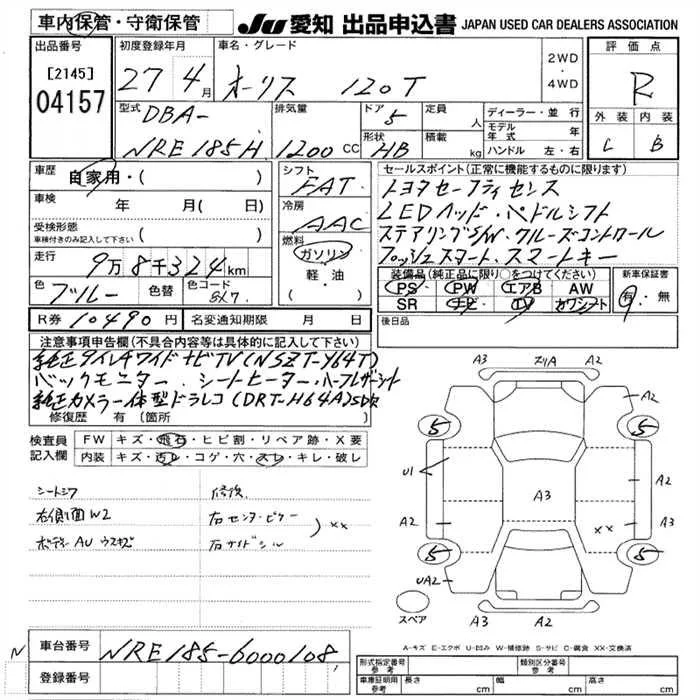 車内保管・守衛保管
JU 愛知 出品申込書 JAPAN USED CAR DEALERS ASSOCIATION
出品番号 [2145] 04157
初度登録年月 27年4月
車名・グレード オーリス 120T
2WD ・ 4WD
評価点 R
外装 内装
C B
型式 DBA-NRE185H
排気量 1200 CC
ドア 5
形状 HB
定員 人
積載 kg
ディーラー・並行
モデル年式 年
ハンドル 左・右
車歴 自家用・( )
車検 年 月( 日)
受検形態
車検付きのみ記入して下さい ( )
走行 9万8千324km
色 ブルー 色替 色コード 8L7
R券 10490円 名変通知期限 月 日
シフト FAT
冷房 AAC
燃料 ガソリン 軽・油
セールスポイント(正常に機能するものに限ります)
トヨタセーフティセンス
LEDヘッド・ペドルシフト
ステアリングSW・クルーズコントロール
プッシュスタート・スマートキー
装備品(純正品に限り○をつけてください)
PS PW エアB AW
SR ナビ TV カワシート
新車保証書
有・無
後日品
注意事項申告欄(不具合内容等は具体的に記入して下さい)
純正9インチワイドナビTV(NSZT-Y64T)
バックモニター・シートヒーター・ハーフレザーシート
純正カメラ一体型ドラレコ(DRT-H64A)SDR
修復歴 有(箇所 )
検査員記入欄
FW キズ・飛石・ヒビ割・リペア跡・X要
内装 キズ・汚レ・コゲ・穴・スレ・キレ・破レ
シートシワ
右側面W2
ボディーAUウスキズ
修復
右センターピラー
右サイドシル
)××
A3 スリA A2
5 5
A2
U1
A3
A2 ×× A2
5 5
UA2
A3 A2 A2
スペア
A-キズ E-エクボ U-凹み W-補修跡 S-サビ C-腐食 XX-交換済
N
車台番号 NRE185-6000108
登録番号
形式指定番号 参考
類別区分番号 参考
車庫証明用 参考 長さ cm 幅 cm 高さ cm